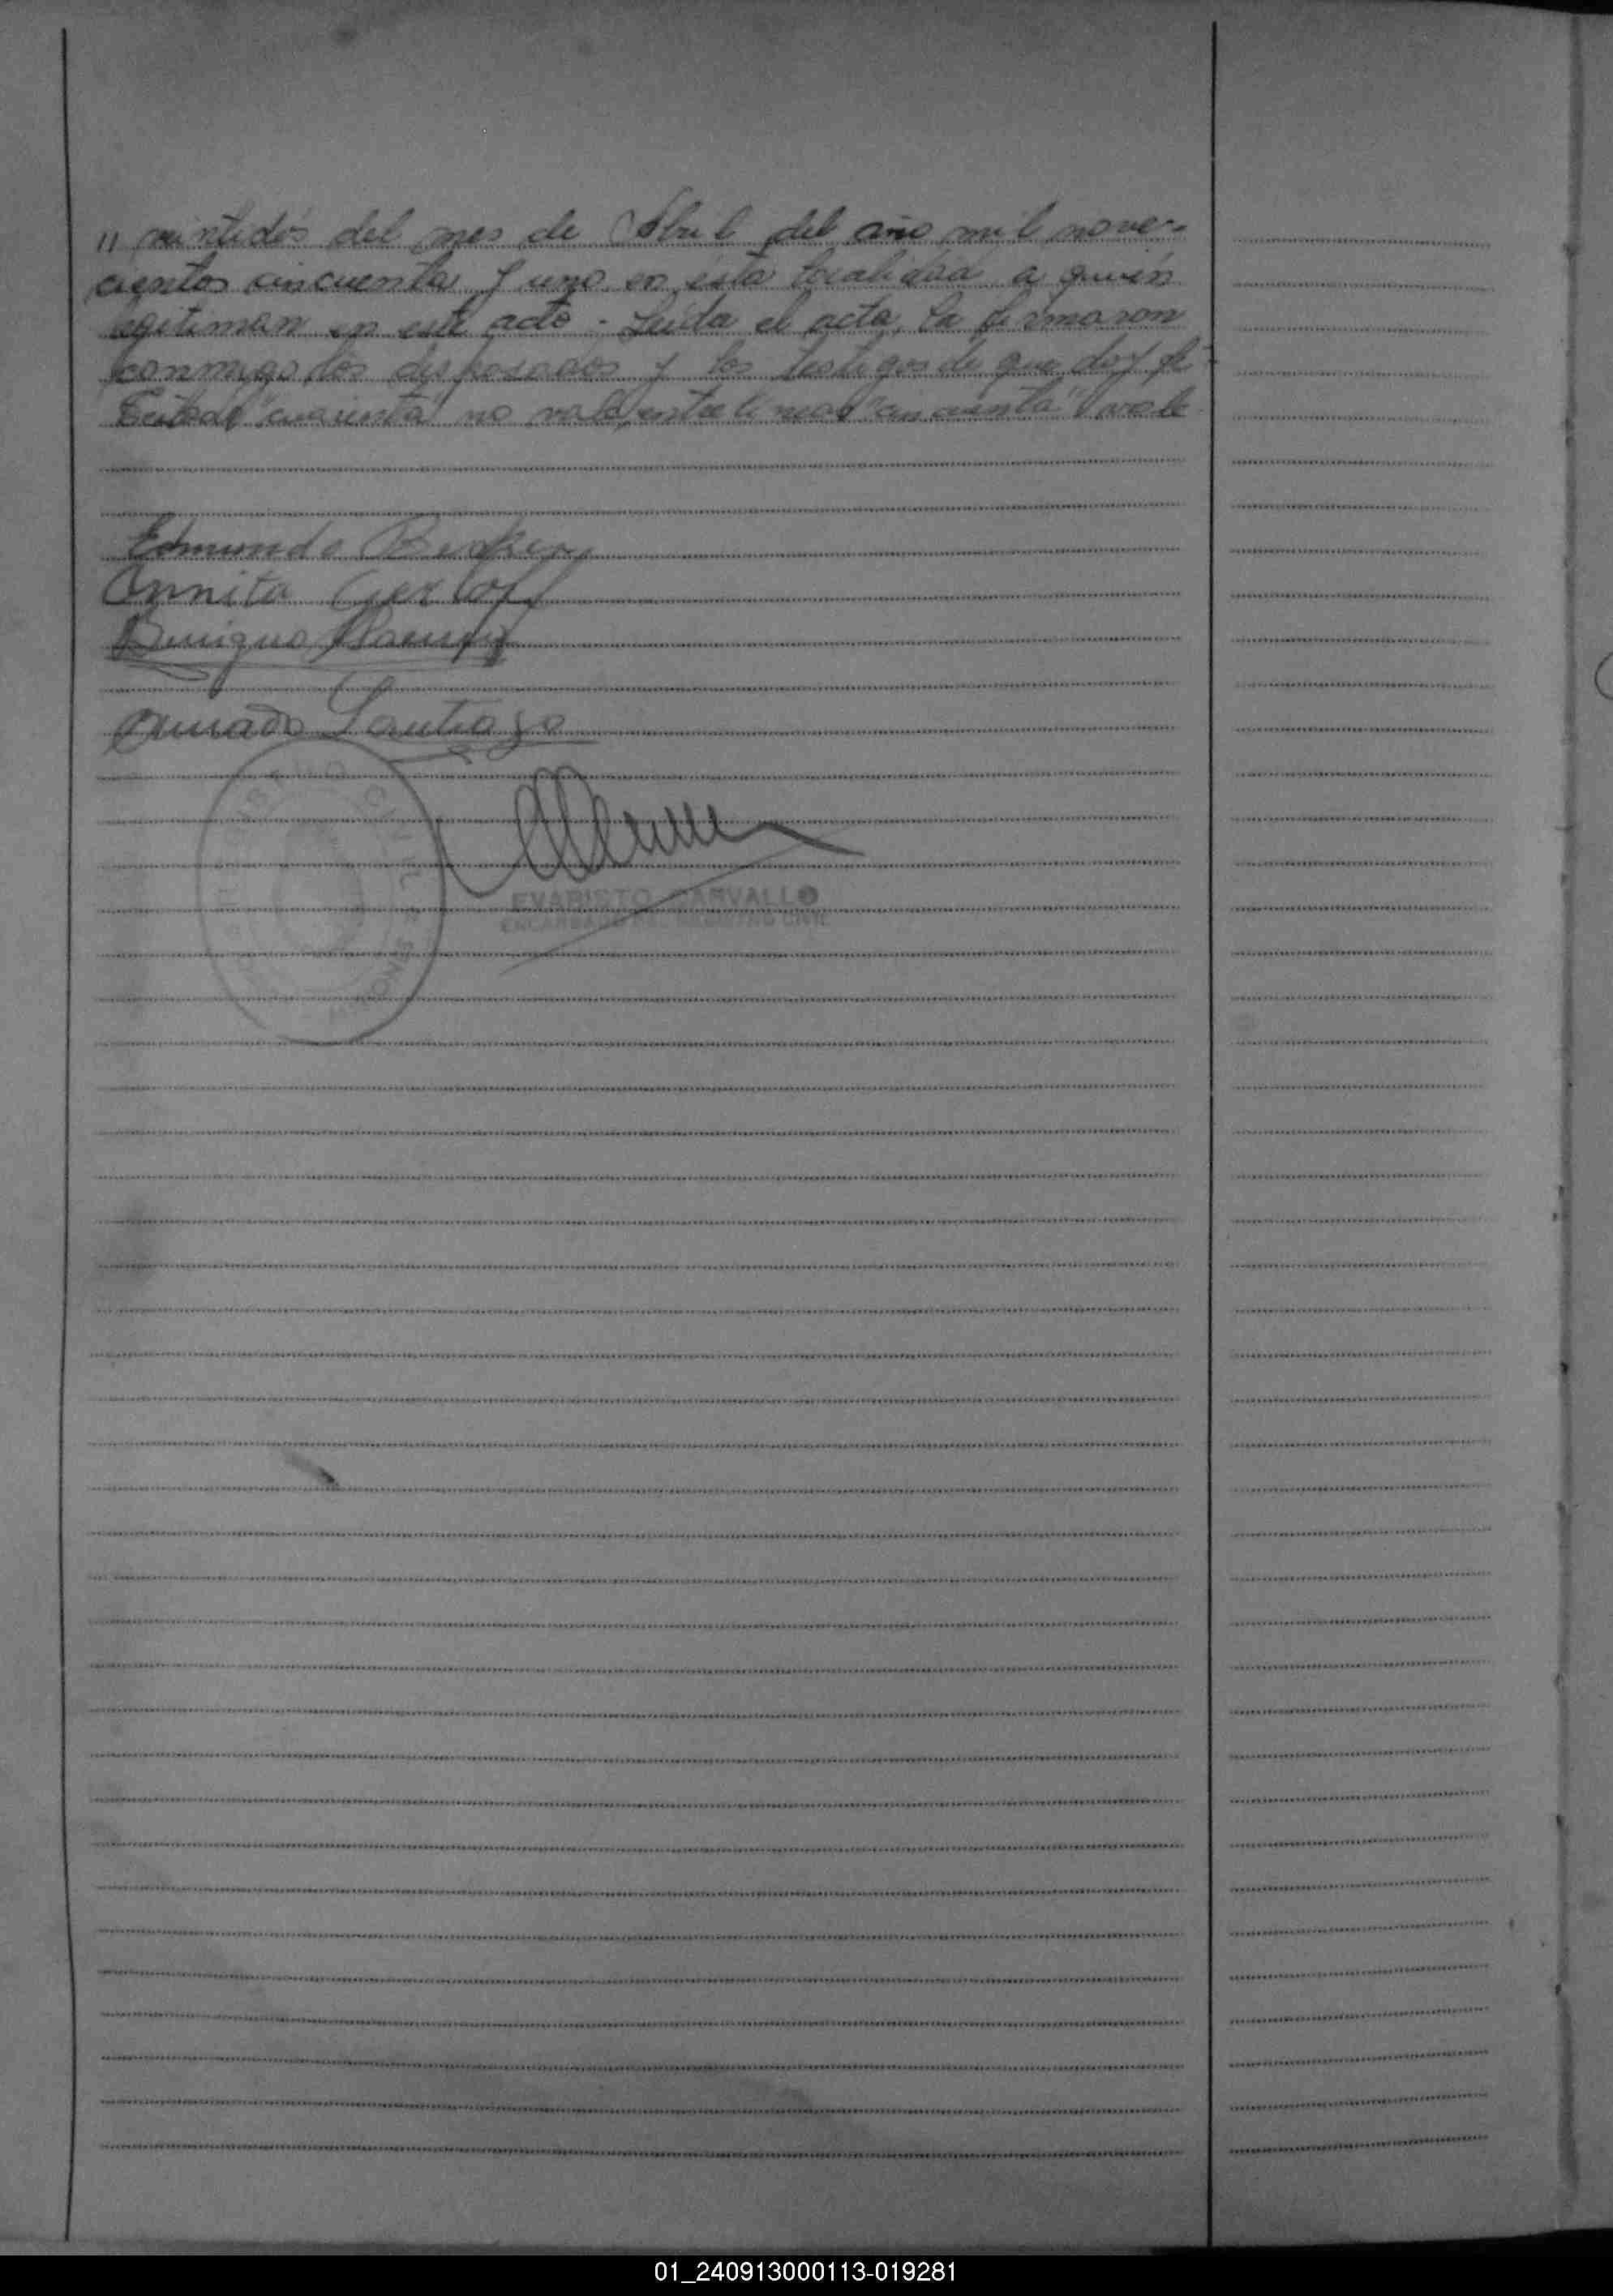 " veintidós del mes de Abril del año mil nove-
cientos cincuenta y uno en ésta localidad a quién
legitiman en este acto - Leída el acta, la firmaron
conmigo los desposados y los testigos de que doy fé-
"cuarenta" no vale, entre lineas "cincuenta" vale
Edmundo
Annita Gerloff
Benigno
Amado Santiago
EVARISTO CARVALLO
ENCARGADO DEL REGISTRO CIVIL
REGISTRO CIVIL
MISIONES
01_240913000113-019281